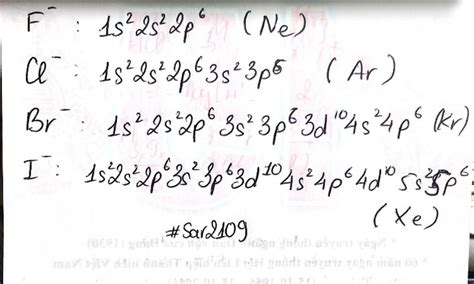 F⁻ : 1s²2s²2p⁶ (Ne)
Cl⁻ : 1s²2s²2p⁶3s²3p⁶ (Ar)
Br⁻ : 1s²2s²2p⁶3s²3p⁶3d¹⁰4s²4p⁶ (Kr)
I⁻ : 1s²2s²2p⁶3s²3p⁶3d¹⁰4s²4p⁶4d¹⁰5s²5p⁶
(Xe)
#Sar2109